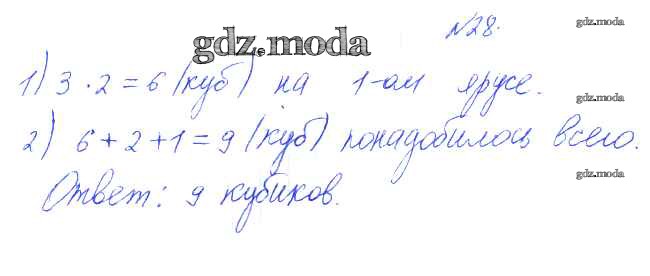 №28.
gdz.moda
gdz.moda
1) 3 · 2 = 6 (куб) на 1-ом ярусе.
gdz.moda
2) 6 + 2 + 1 = 9 (куб) понадобилось всего.
gdz.moda
Ответ: 9 кубиков.